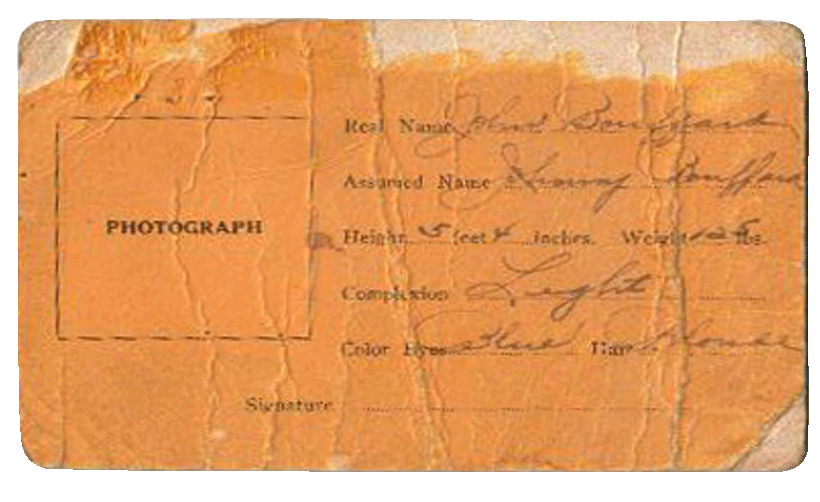 Real Name John Bouffard
Assumed Name Jimmy Bouffard
PHOTOGRAPH
Height 5 feet 4 inches. Weight 125 lbs.
Complexion Light
Color Eyes Blue Hair Blonde
Signature